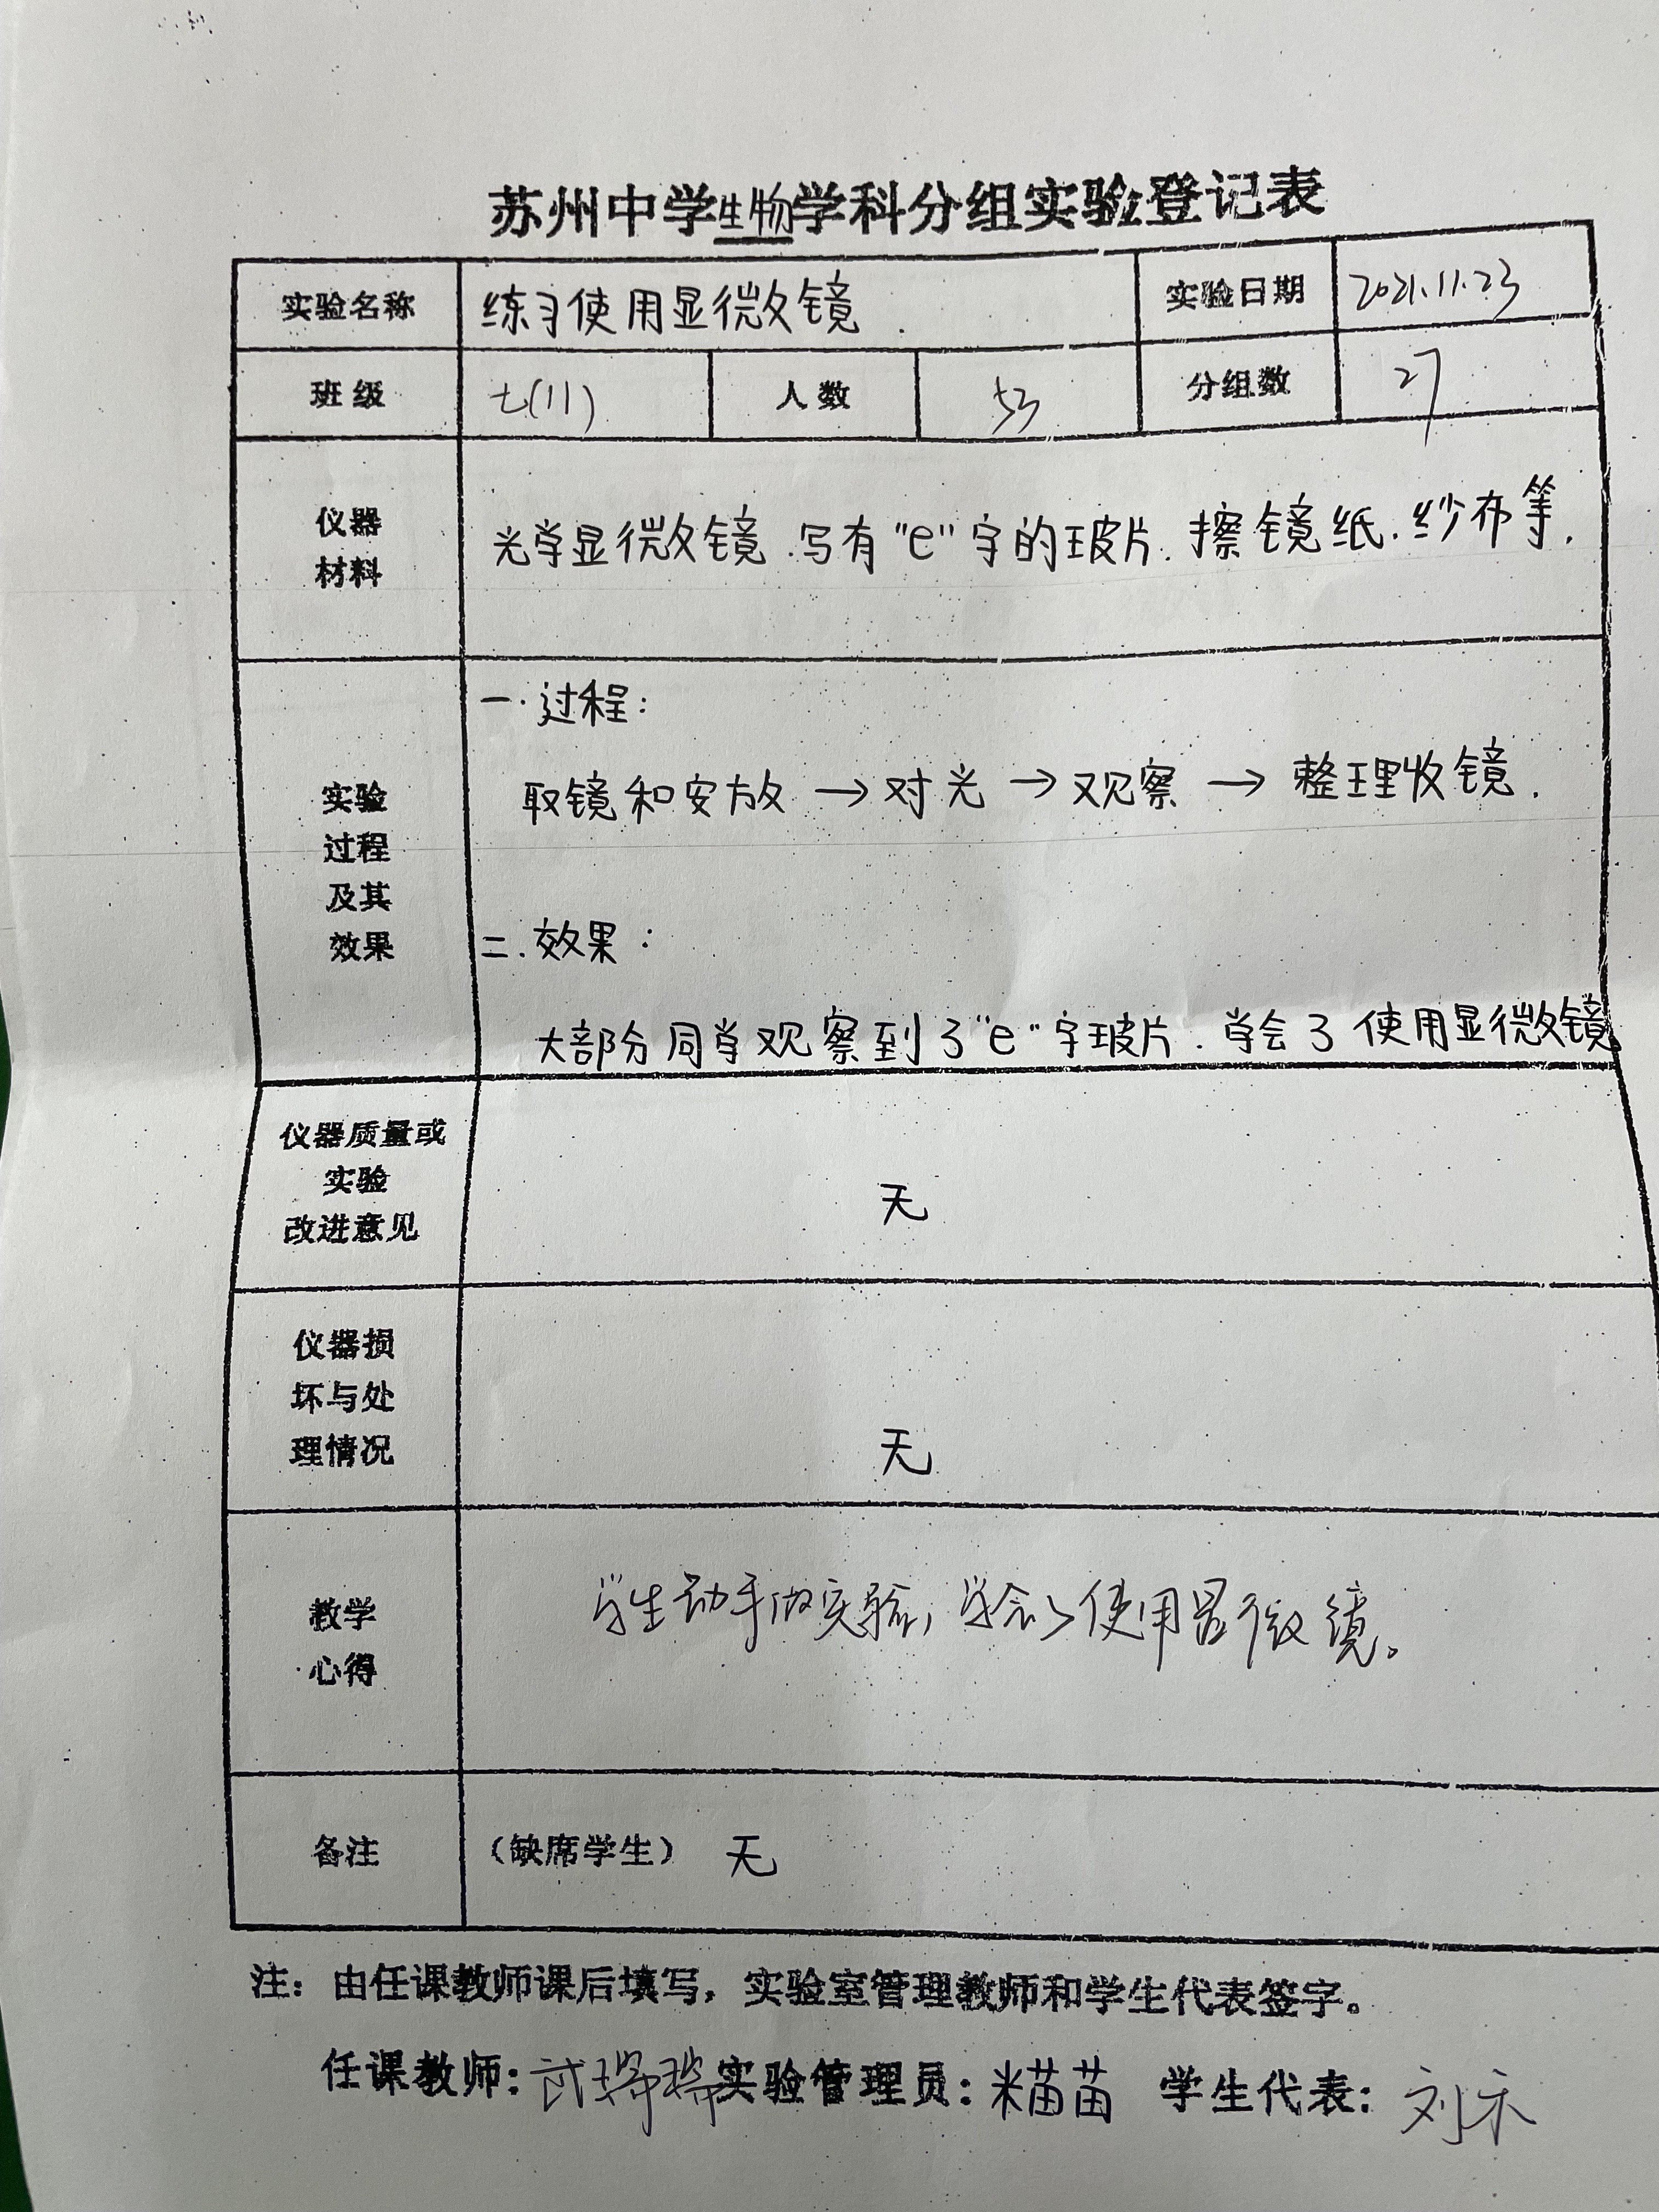 苏州中学生物学科分组实验登记表
实验名称 练习使用显微镜. 实验日期 2021.11.23
班级 七(11) 人数 53 分组数 27
仪器
材料
光学显微镜.写有"e"字的玻片.擦镜纸.纱布等.
实验
过程
及其
效果
一.过程:
取镜和安放→对光→观察→整理收镜.
二.效果:
大部分同学观察到了"e"字玻片.学会了使用显微镜
仪器质量或
实验
改进意见
无
仪器损
坏与处
理情况
无
教学
心得
学生动手做实验,学会了使用显微镜。
备注 (缺席学生) 无
注:由任课教师课后填写,实验室管理教师和学生代表签字。
任课教师:武瑞瑞 实验管理员:米苗苗 学生代表:刘禾